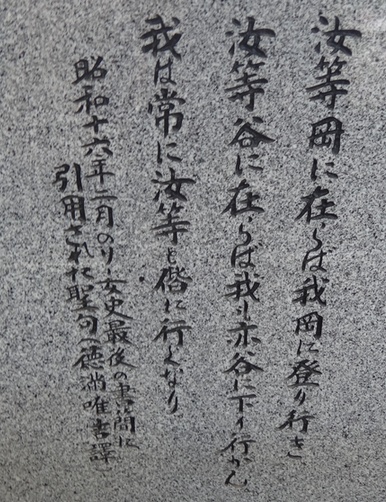 汝等岡に在らば我岡に登り行き
汝等谷に在らば我も亦谷に下り行かん
我は常に汝等と偕に行くなり
昭和十六年二月のリー女史最後の書簡に
引用された聖句（徳満唯吉譯